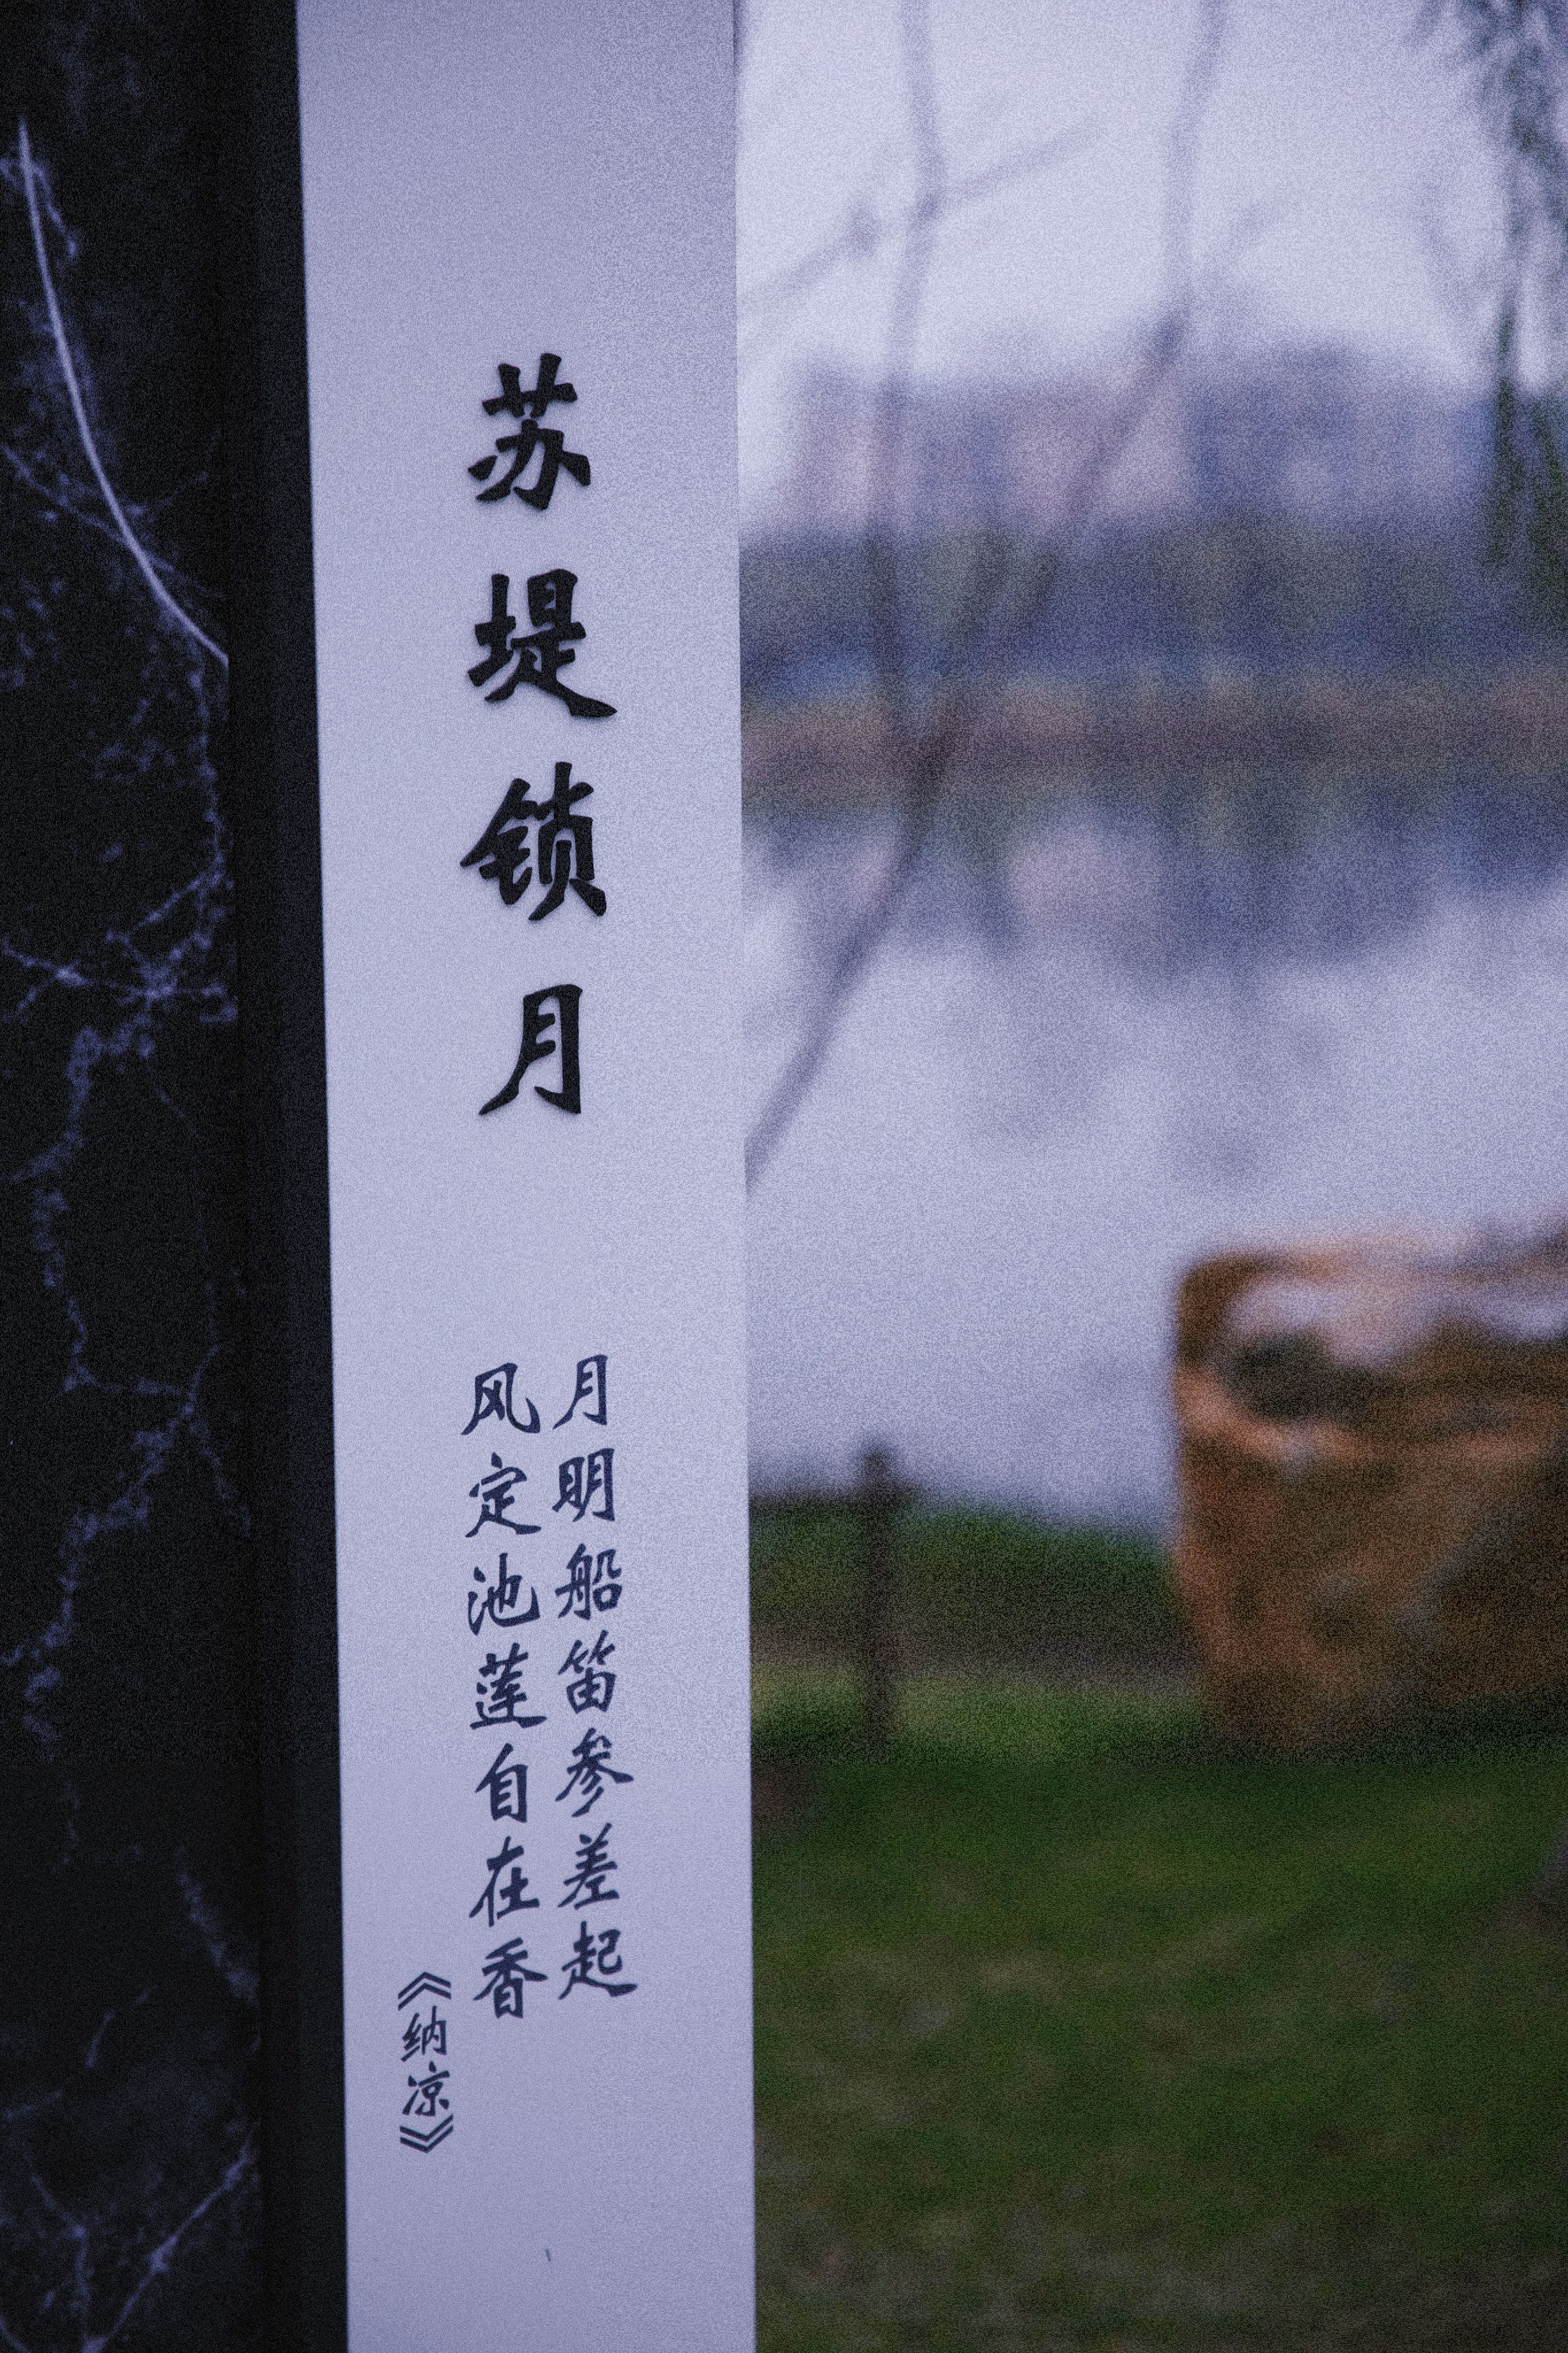 苏堤锁月
月明船笛参差起
风定池莲自在香
《纳凉》